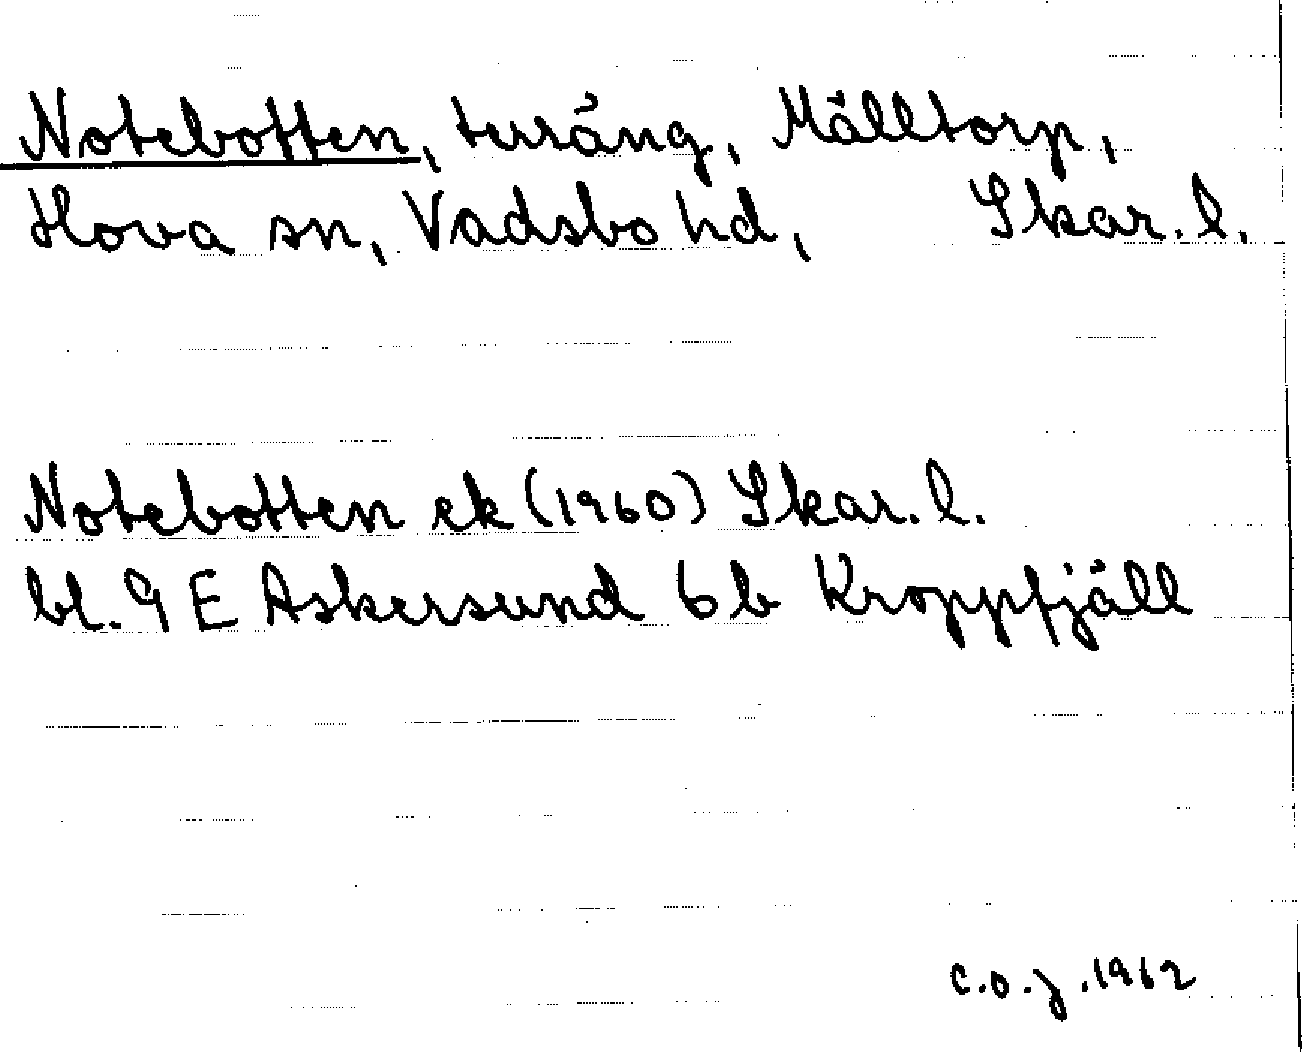 Notebotten, terräng, Mälltorp,
Hova sn, Vadsbo hd, Skar. l.
Notebotten ek (1960) Skar. l.
bl. 9 E Askersund 6 b Kroppfjäll
C.O.J. 1962